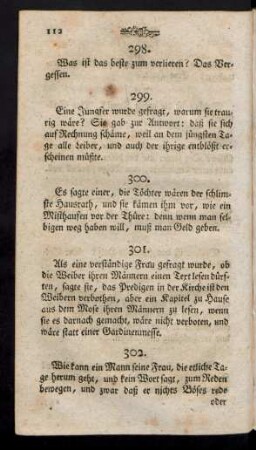 112
298.
Was ist das beste zum verlieren? Das Ver-
gessen.
299.
Eine Jungfer wurde gefragt, warum sie trau-
rig wäre? Sie gab zur Antwort: daß sie sich
auf Rechnung schäme, weil an dem jüngsten Ta-
ge alle Leiber, und auch der ihrige entblößt er-
scheinen müßte.
300.
Es sagte einer, die Töchter wären der schlim-
ste Hausrath, und sie kämen ihm vor, wie ein
Misthaufen vor der Thüre: denn wenn man sel-
bigen weg haben will, muß man Geld geben.
301.
Als eine verständige Frau gefragt wurde, ob
die Weiber ihren Männern einen Text lesen dürf-
ten, sagte sie, das Predigen in der Kirche ist den
Weibern verbothen, aber ein Kapitel zu Hause
aus dem Mose ihren Männern zu lesen, wenn
sie es darnach gemacht, wäre nicht verboten, und
wäre statt einer Gardinenmesse.
302.
Wie kann ein Mann seine Frau, die etliche Ta-
ge herum geht, und kein Wort sagt, zum Reden
bewegen, und zwar daß er nichts Böses rede
oder